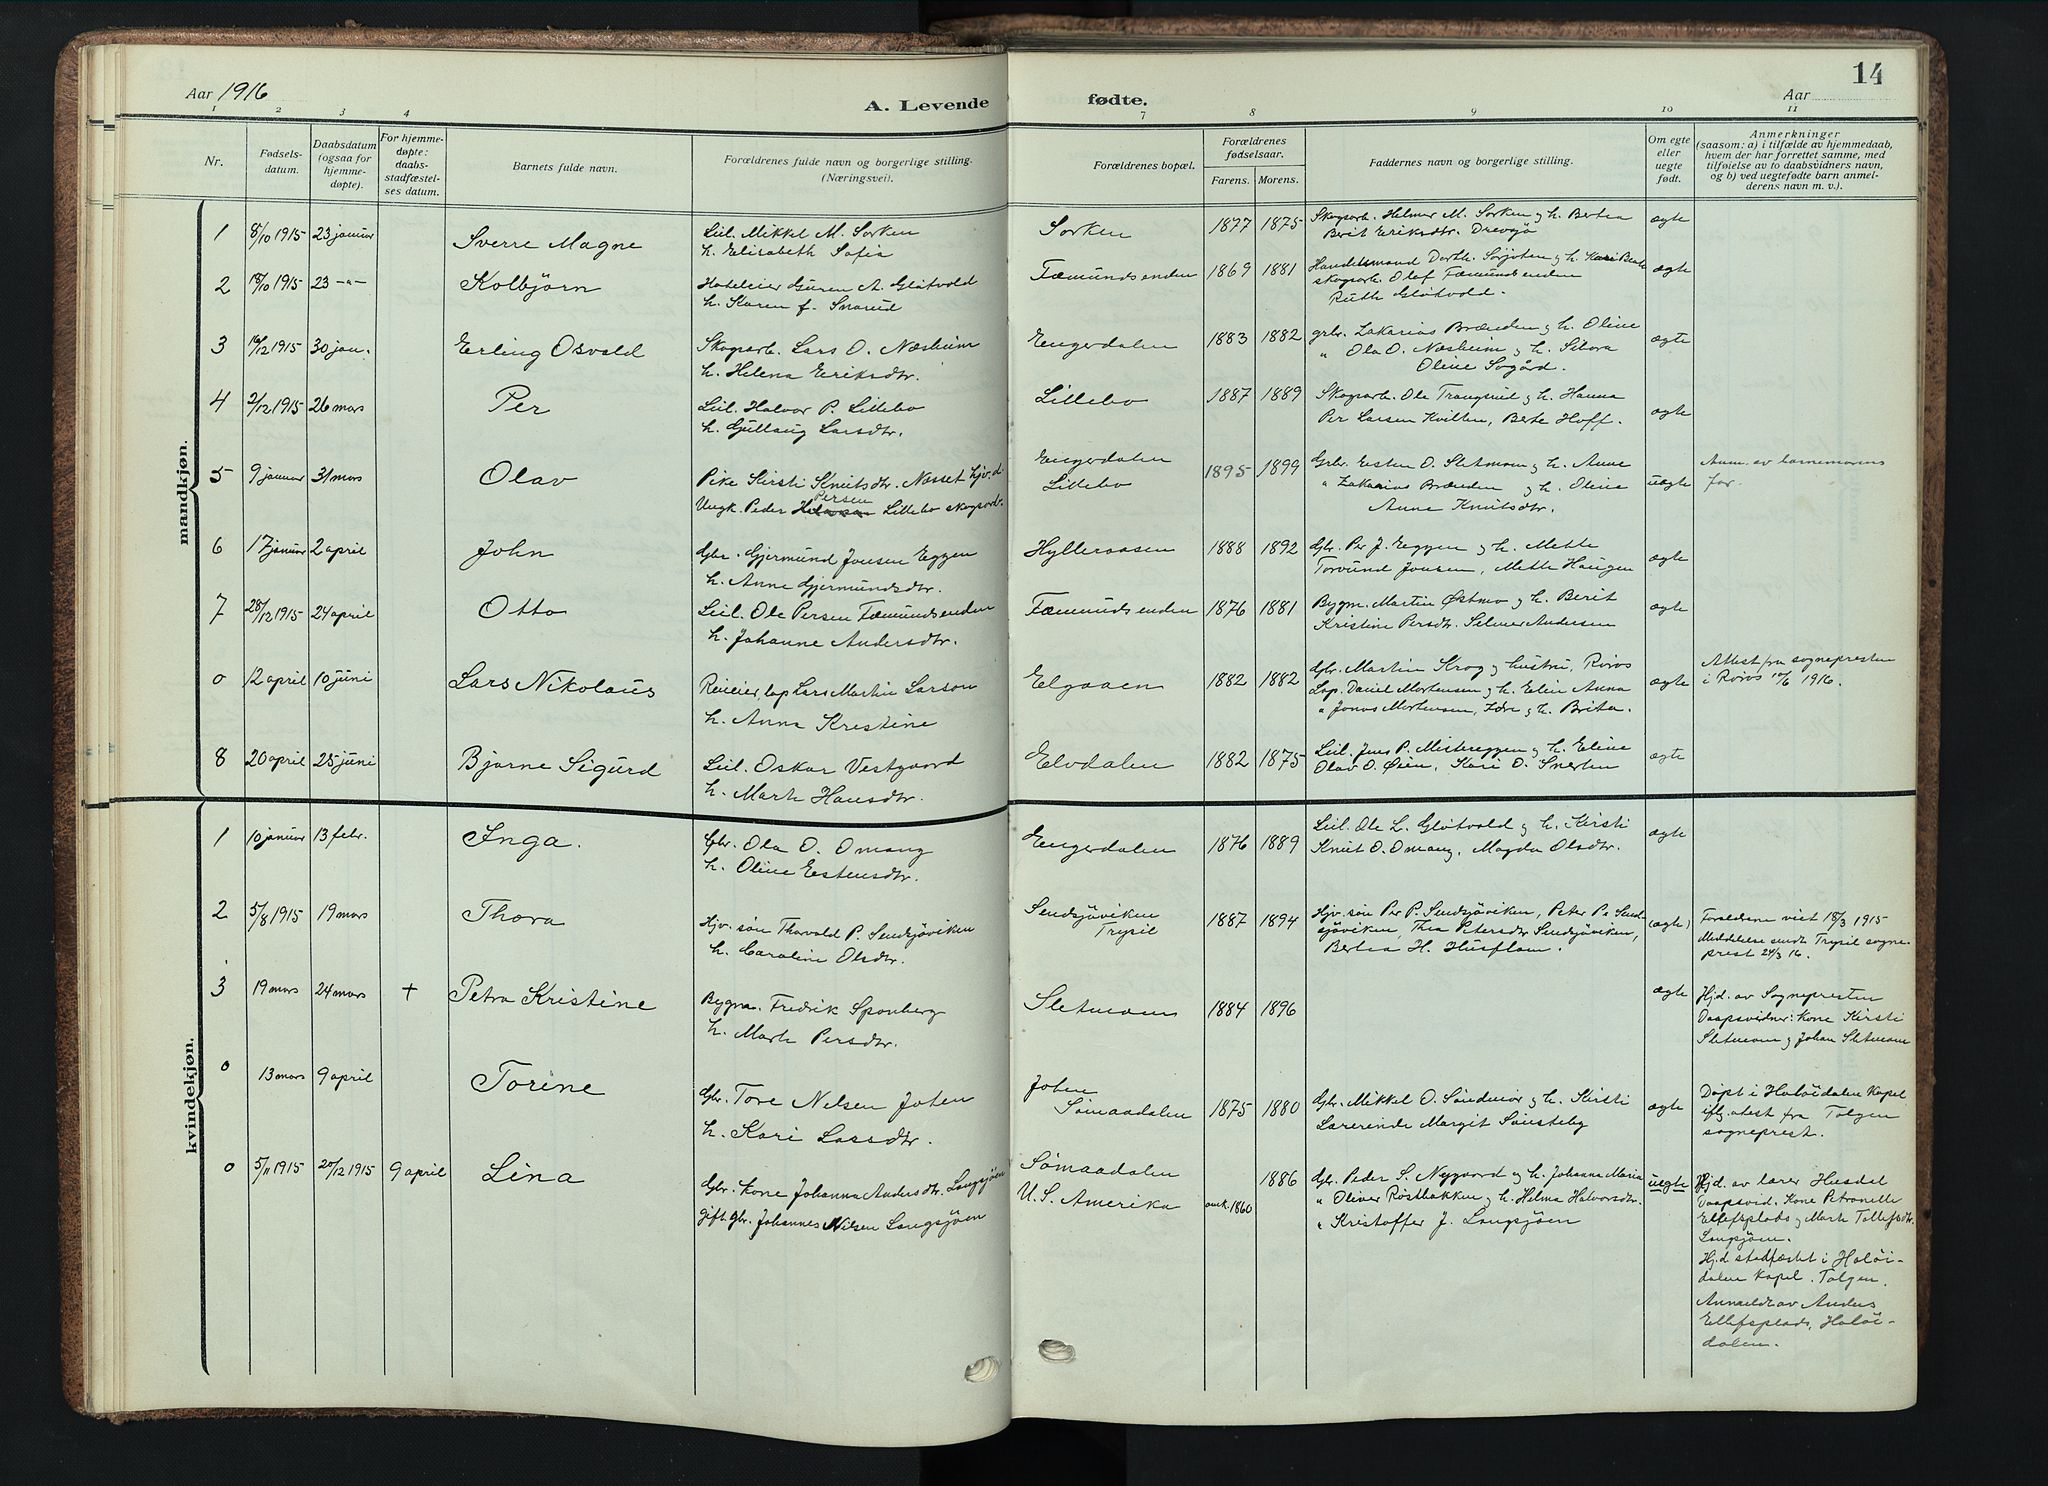 14
Aar 1916
A. Levende fødte.
Aar
1 2 3 4 7 8 9 10 11
Nr.
Fødsels-
datum.
Daabsdatum
(ogsaa for
hjemme-
døpte).
For hjemme-
døpte:
daabs-
stadfæstel-
ses datum.
Barnets fulde navn.
Forældrenes fulde navn og borgerlige stilling.
(Næringsvei).
Forældrenes bopæl.
Forældrenes
fødselsaar.
Farens. Morens.
Faddernes navn og borgerlige stilling.
Om egte
eller
uegte
født.
Anmerkninger
(saasom: a) i tilfælde av hjemmedaab,
hvem der har forrettet samme, med
tilføielse av to daabsvidners navn,
og b) ved uegtefødte barn anmel-
derens navn m. v.).
mandkjøn.
1 8/10 1915 23 januar Sverre Magne
Leil. Mikkel M. Sorken
h. Elisabeth Sofia
Sorken 1877 1875
Skogsarb. Helmer M. Sorken og h. Bertea
Berit Eriksdtr. Drevsjø
ægte
2 /10 1915 23 -"- Kolbjörn
Hoteleier Guren A. Glötvold
h. Karen f. Snarud
Fæmundsenden 1869 1881
Handelsmand Dorth. Sorjoten og h.
skogsarb. Olaf Fæmundsenden
Ruth Glötvold.
ægte
3 16/12 1915 30 jan. Erling Osvald
Skogsarb. Lars O. Næsheim
h. Helena Eriksdtr.
Engerdalen 1883 1882
grbr. Zakarias Brænden og h. Oline
" Ola O. Næsheim og h. Sibora
Oline Sogård.
ægte
4 2/12 1915 26 mars Per
Leil. Halvor P. Lillebo
h. Gullaug Larsdtr.
Lillebo 1887 1889
Skogsarb. Ole Trangsvil og h. Hanna
Per Larsen Kvilten, Berte Hoff.
ægte
5 9 januar 31 mars Olav
Pike Kirsti Knutsdtr. Næsset hjv. d.
Persen
Ungk. Peder Lillebo skogsarb.
Engerdalen
Lillebo
1895 1899
Grbr. Esten O. Sletmoen og h. Anne
" Zakarias Brænden og h. Oline
Anne Knutsdtr.
uægte
Anm. av barnemorens
far.
6 17 januar 2 april John
Gbr. Gjermund Jonsen Eggen
h. Anne Gjermundsdtr.
Hylleraasen 1888 1892
Gbr. Per J. Eggen og h. Mette
Torvund Jonsen, Mette Haugen
ægte
7 28/12 1915 24 april Otto
Leil. Ole Persen Fæmundsenden
h. Johanne Andersdtr.
Fæmundsenden 1876 1881
Bygm. Martin Østmo og h. Berit
Kristine Persdtr. Selmer Andersen
ægte
0 12 april 10 juni Lars Nikolaus
Reneier lap Lars Martin Larson
h. Anna Kristine
Elgaaen 1882 1882
Gbr. Martin Krog og hustru, Röros
Lap. Daniel Mortensen og h. Elin Anna
" Jonas Mortensen, Fæm og h. Brita.
ægte
Attest fra sognepresten
i Röros 10/6 1916.
8 20 april 25 juni Bjarne Sigurd
Leil. Oskar Vestgaard
h. Marte Hansdtr.
Elvdalen 1882 1875
Leil. Jens P. Mistereggen og h. Eline
Olav O. Øien, Kari O. Snerten
ægte
kvindekjøn.
1 10 januar 13 febr. Inga.
Gbr. Ola O. Omang
h. Oline Estensdtr.
Engerdalen 1876 1889
Leil. Ole L. Glötvold og h. Kirsti
Knut O. Omang, Magda Olsdtr.
ægte
2 5/8 1915 19 mars Thora
Hjv. søn Thorvald P. Sendsjöviken
h. Caroline Olsdtr.
Sendsjöviken
Trysil
1887 1894
Hjv. søn Per P. Sendsjöviken, Peter P. Send-
sjöviken, Thea Petersdtr Sendsjöviken,
Bertea H. Husflom.
(ægte)
Forældrene viet 18/3 1915
Meddelelse sendt Trysil sogne-
prest 24/3 16.
3 19 mars 24 mars + Petra Kristine
Bygm. Fredrik Sponberg
h. Marte Persdtr.
Sletmoen 1884 1896
ægte
Hjd. av Sognepresten
Daapsvidner: Kone Kirsti
Sletmoen og Johan Sletmoen
0 13 mars 9 april Torine
Gbr. Tore Nelsen Joten
h. Kari Larsdtr.
Joten
Sömaadalen
1875 1880
Gbr. Mikkel O. Søndmör og h. Kirsti
Lærerinde Margit Sausteby
ægte
Døpt i Holöidalen kapel
iflg. atest fra Tolgen
sogneprest.
0 5/11 1915 20/12 1915 9 april Lina
Gbr. kone Johanna Andersdtr. Langsjöen
gift. Gbr. Johannes Nilsen Langsjöen
Sømaadalen
U. S. Amerika
omk. 1860 1886
Gbr. Peder S. Nygaard og h. Johanna Maria
" Oliver Röstbakken og h. Helma Halvorsdtr.
" Kristoffer J. Langsjöen
uegte
Hjd. av lærer Husdal
Daapsvid. Kone Petronelle
Ellefsplads og Marte Tollefsdtr.
Langsjöen.
Hjd stadfæstet i Holöi-
dalen Kapel. Tolgen.
Anmeldt av Anders
Ellefsplads, Holöi-
dalen.